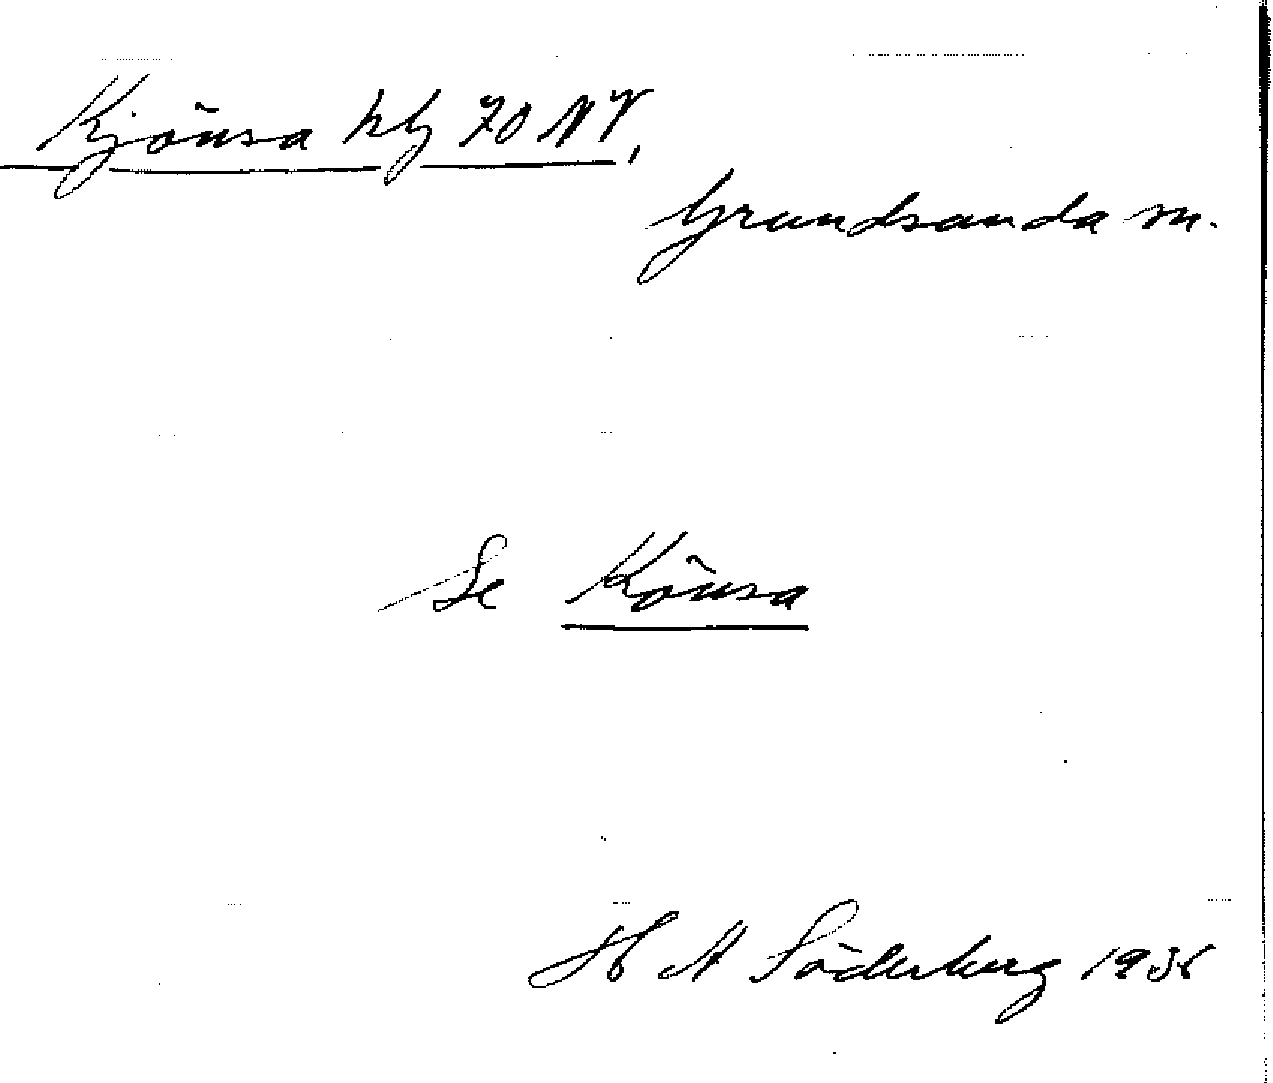 Kjönsa hlg 70 NV,
Grundsanda m.
Se Könsa
H A Söderberg 193